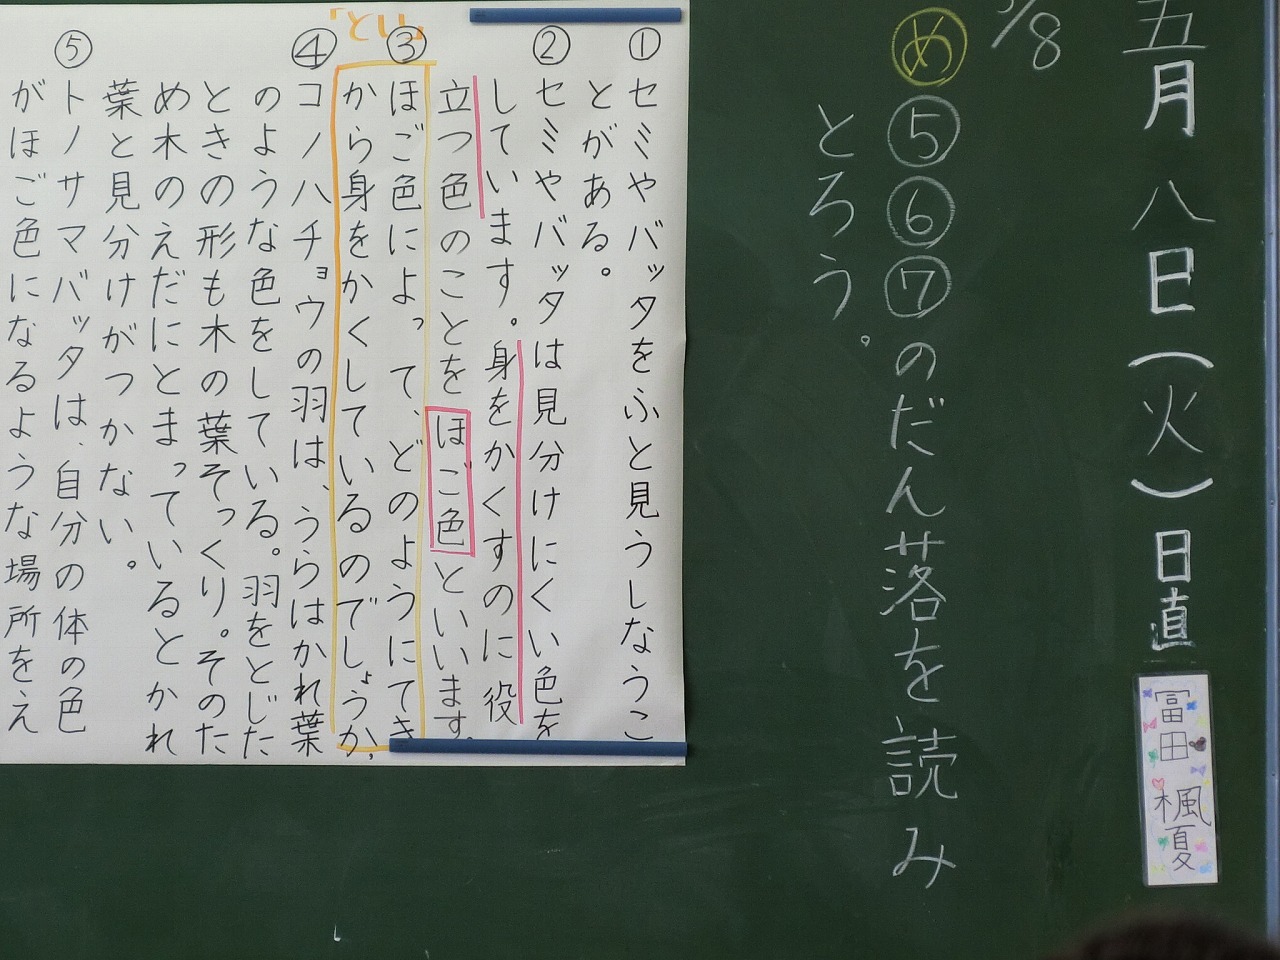 五月八日(火)日直
冨田 楓夏
5/8
め ⑤⑥⑦のだん落を読み
とろう。
①セミやバッタをふと見うしなうこ
とがある。
②セミやバッタは見分けにくい色を
しています。身をかくすのに役
立つ色のことをほご色といいます。
③ほご色によって、どのようにてき
から身をかくしているのでしょうか。
④コノハチョウの羽は、うらはかれ葉
のような色をしている。羽をとじた
ときの形も木の葉そっくり。そのた
め木のえだにとまっているとかれ
葉と見分けがつかない。
⑤トノサマバッタは、自分の体の色
がほご色になるような場所をえ